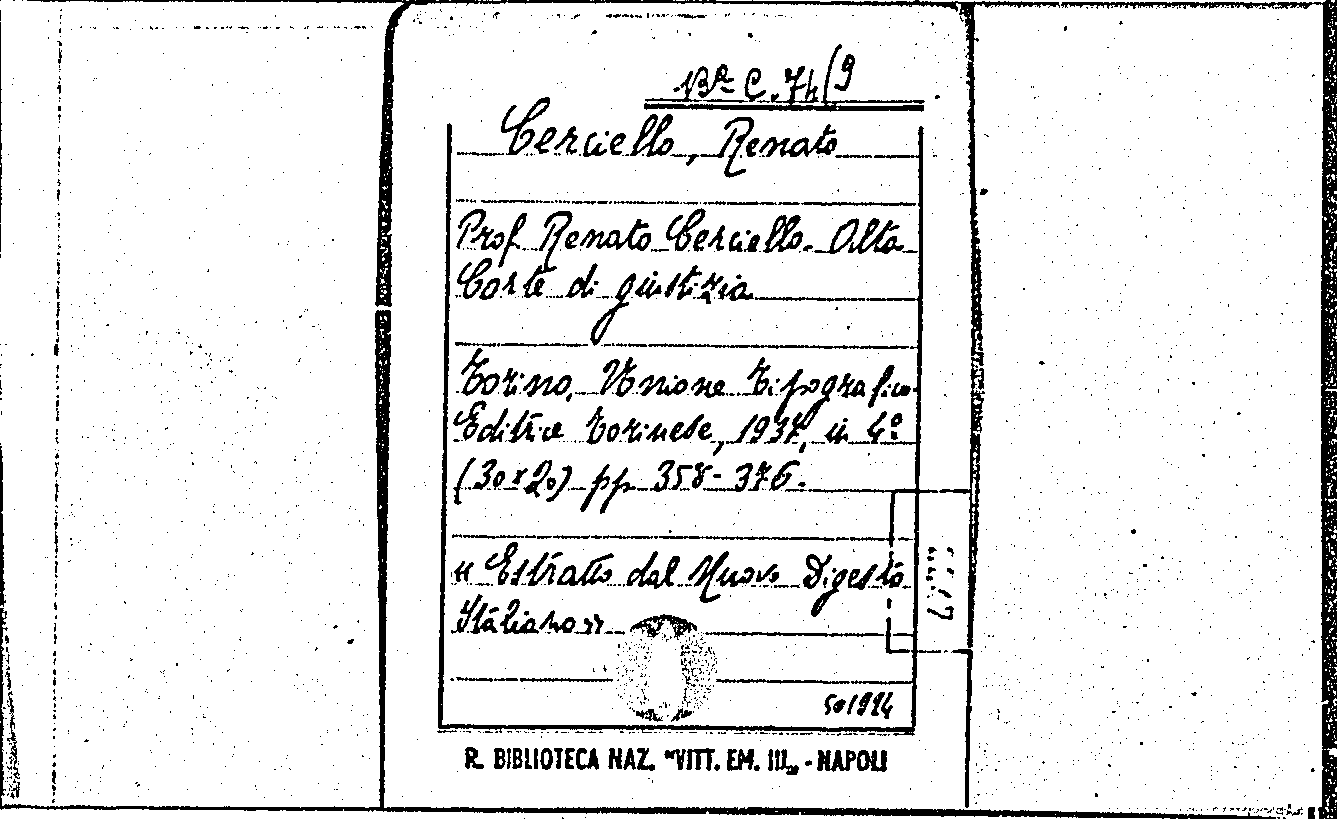 Bª C. 74/9
Cerciello, Renato
Prof. Renato Cerciello. Alta
Corte di giustizia
Torino, Unione Tipografico-
Editrice Torinese, 1937, in 4º
(30x20) pp. 358-376.
"Estratto dal Nuovo Digesto
Italiano"
501924
R. BIBLIOTECA NAZ. "VITT. EM. III„ - NAPOLI